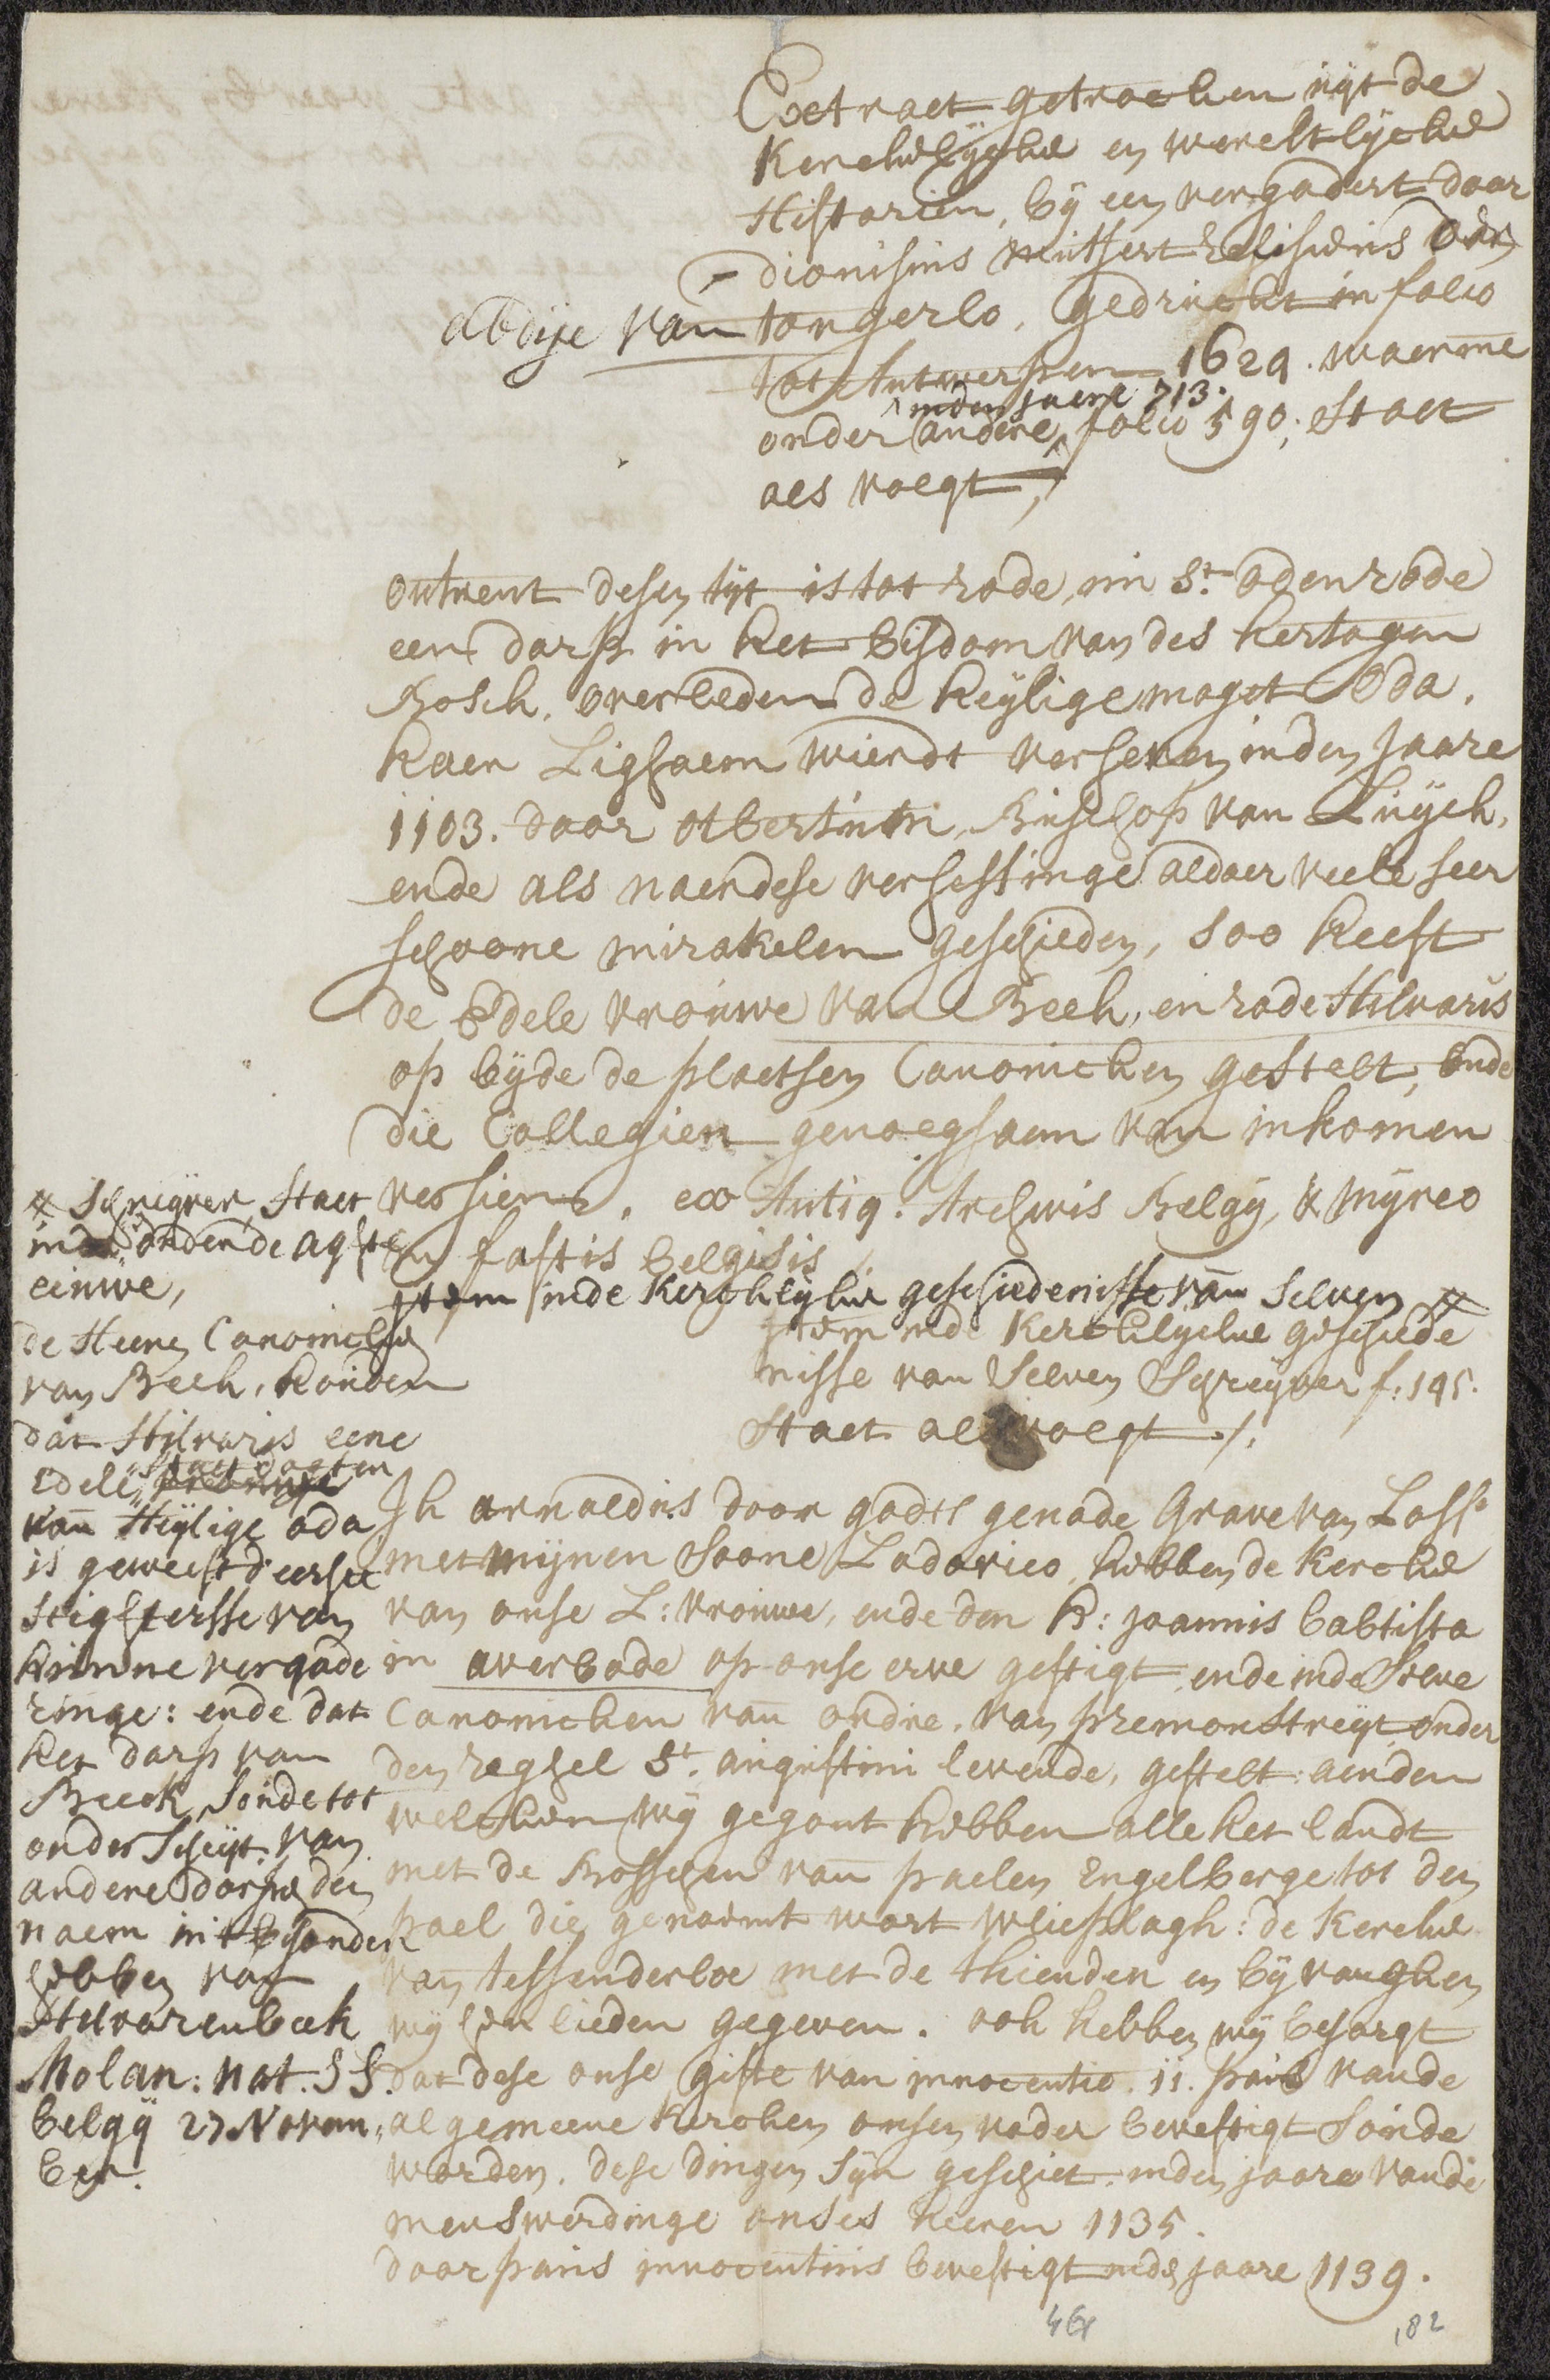 Extract getrocken uyt de
Kerckelycke en wereltlycke
Historien, by een vergadert door
dionisius Mutsert Relisieus der
abdije van tongerlo, gedruckt in folio
tot Antwerpen 1629. waerinne
onder andere, folio 590; Staet
inden jaere 713.
als volgt,
omtrent desen tijt is tot rode, nu St. odenrode
een dorp in het bisdom van des hertogen
Bosch, overleden de heylige maget Oda.
haer Lighaem wierdt verheven inden Jaare
1103. door otbertum, Bischop van Luych,
ende als naer dese verheffinge aldaer veele seer
schoone mirakelen geschieden, soo heeft
de Edele vrouwe van Beeck, en rode Hilvaris
op beyde de plaetsen Canonicken gestelt, ende
die Collegien genoeghsaem van inkomen
versien. ex Antiq. Archivis Belgy, & Myreo
in fastis belgisis
Item inde Kerckelycke geschiedenisse van selven #
Item inde Kerckelycke geschiede
nisse van Selven Schreyver f: 195.
Staet als volgt /.
# Schreyver, Staet
inde ondende aghste
eeuwe,
de Heeren Canonicken
van Beeck, houden
dat Hilvaris eene
Edele staet dogter
van Heylige oda
is geweest d'eerste
Stightersse van
hunne vergade
ringe: ende dat
het dorp van
Beeck soude tot
onderscheyt van
andere dorpe den
naem int besonder
hebben van
Hilvarenbeek
Molan: nat. SS.
belgy 27 Novem
ber.
Ik arnoldus door godts genade Grave van Losse
met mijnen Soone Lodovico, hebben de kercke
van onse L: vrouwe, ende den H: joannis babtista
in averbode op onse erve gestigt ende inde Steve
Canonicken van ordre van premonstreyt onder
den reghel St. augustini levende, gestelt: aen den
welcken wy gegont hebben alle het landt
met de Bosschen van paelen Engelberge tot den
pael die genoemt wort vliesplagh: de kercke
van tessenderloe met de thienden en byvanghen
wy hun lieden gegeven. ook hebben wy besorgt
dat dese onse gifte van innocentio. ii. paus vande
algemeene kercken onsen vader bevestigt soude
worden. dese dingen syn geschiet inden jaare vande
menswerdinge onses heeren 1135.
door paus innocentius bevestigt inde jaare 1139.
182